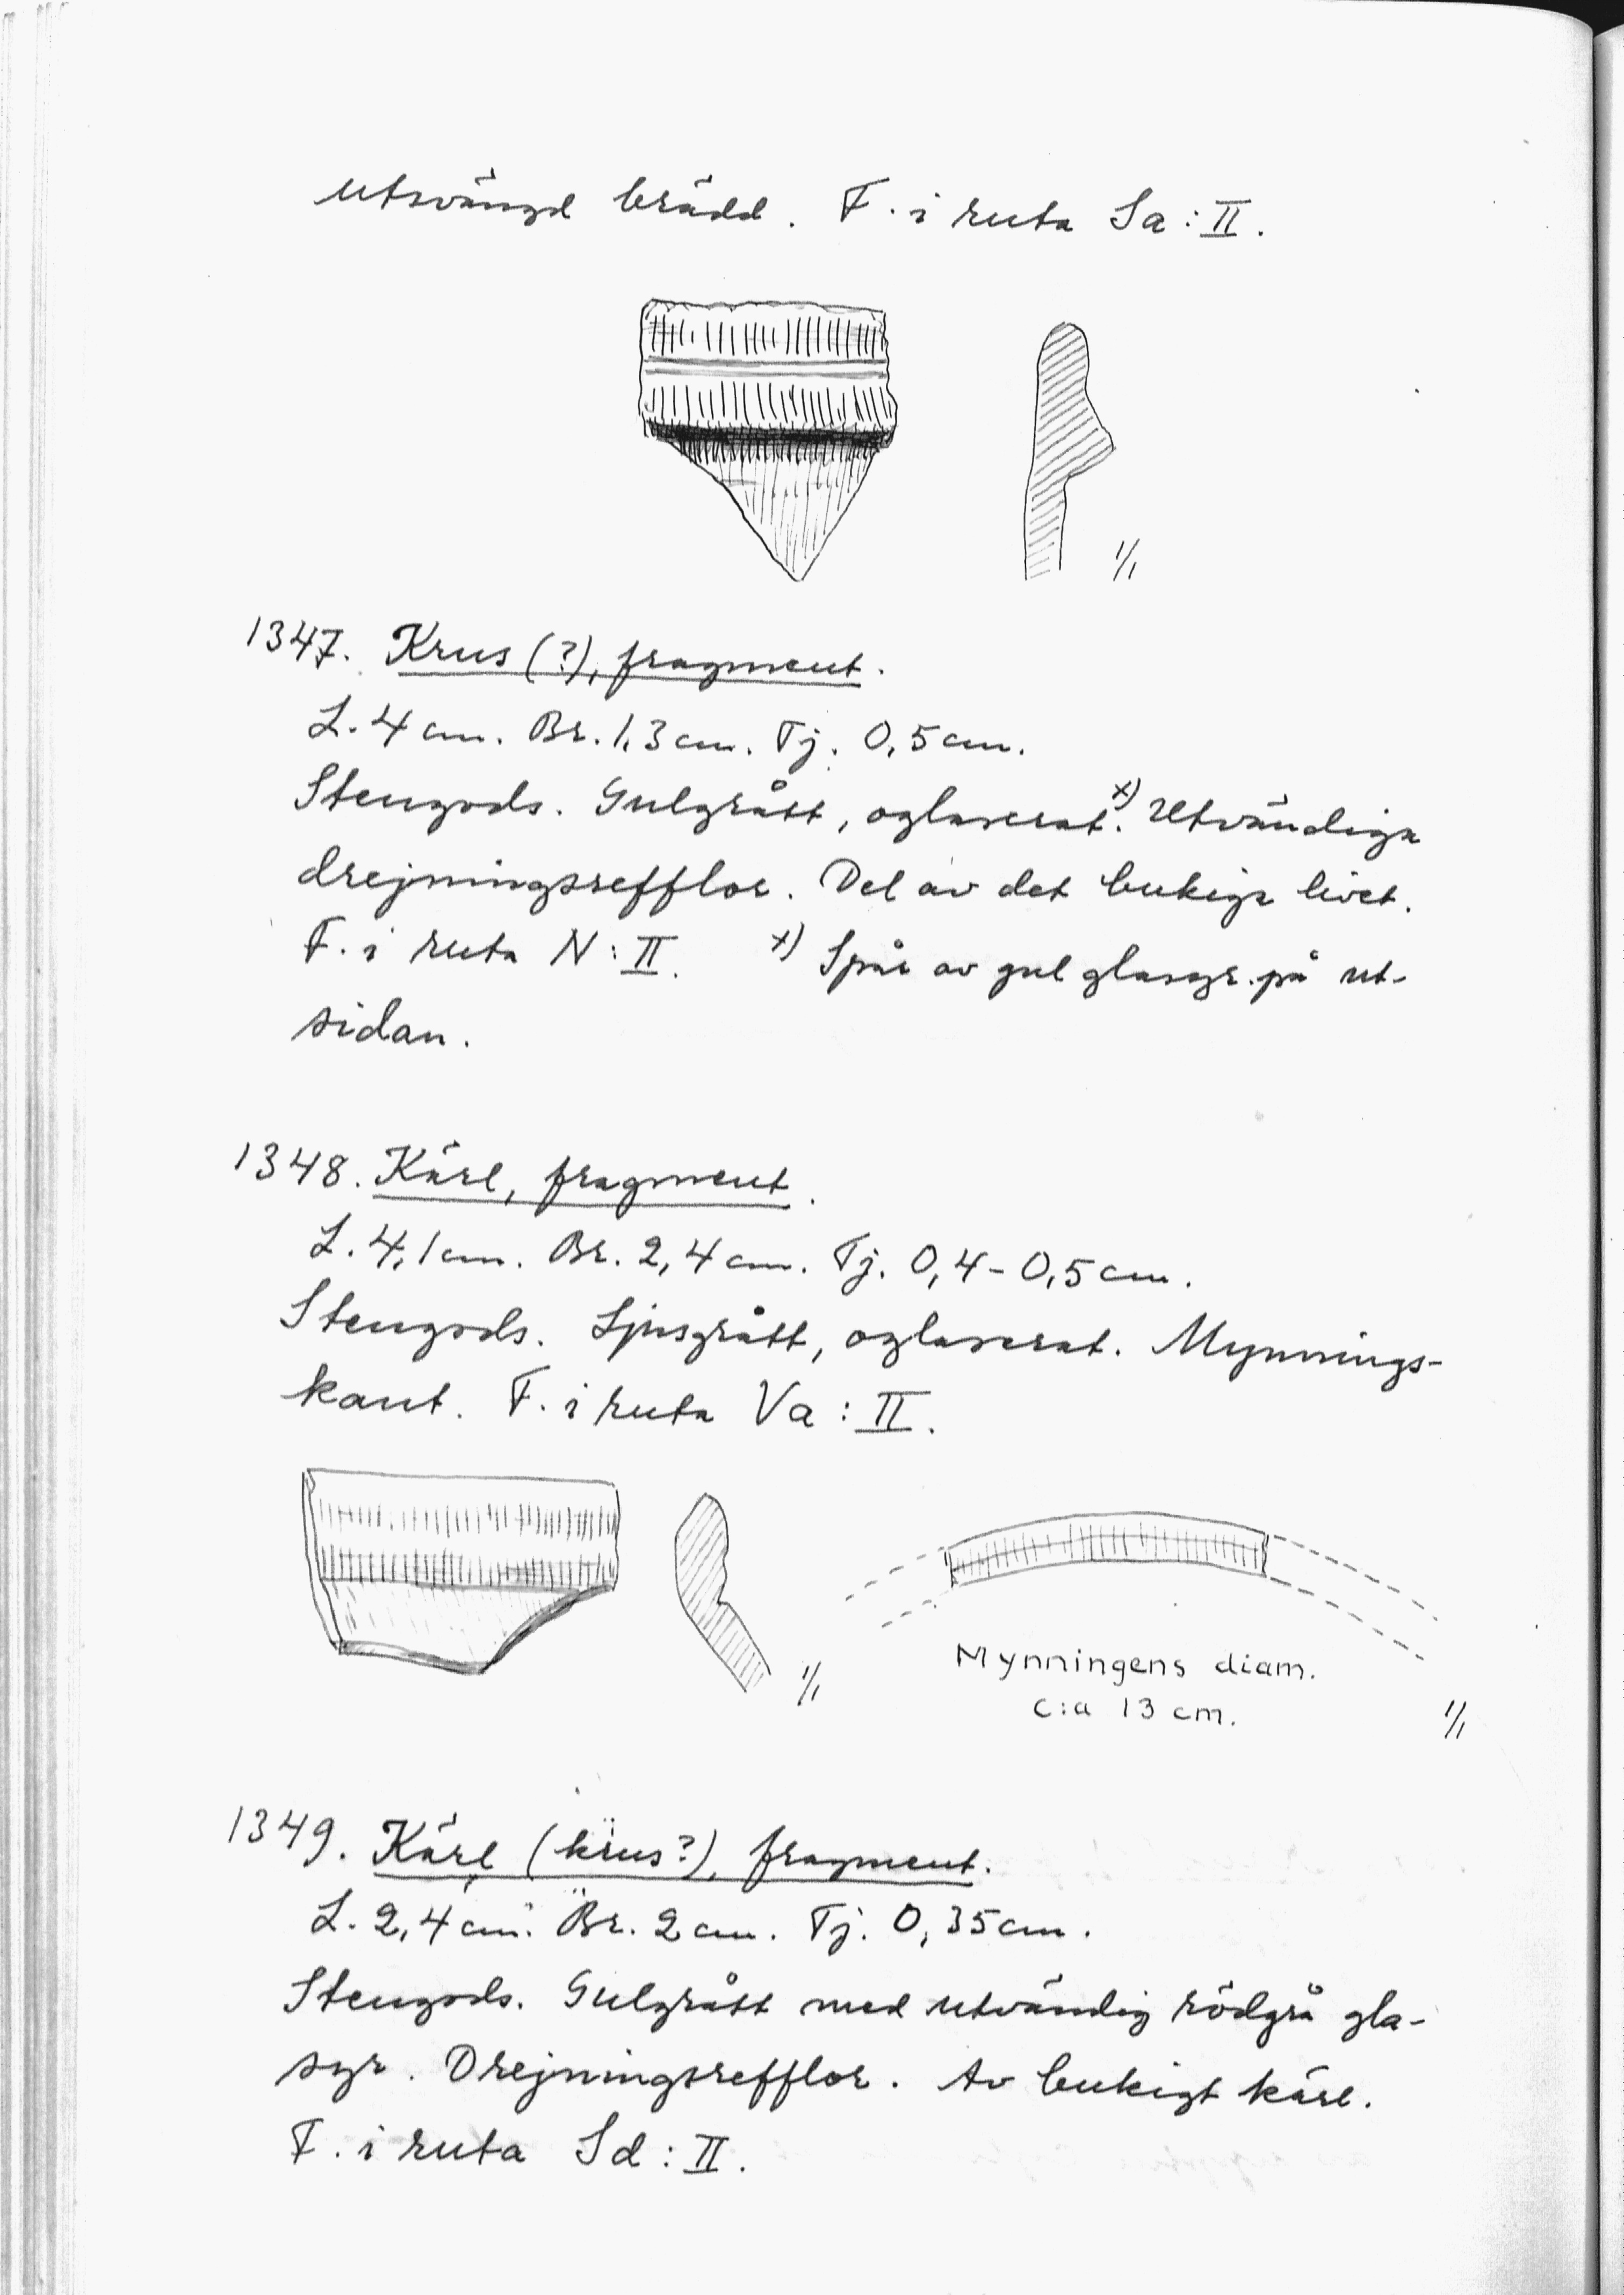 utsvängd brädd. F. i ruta Sa:II.
1/1
1347. Krus (?), fragment.
L. 4 cm. Br. 1,3 cm. Tj. 0,5 cm.
Stengods. Gulgrått, oglaserat.x) Utvändiga
drejningsrefflor. Del av det bukiga livet.
F. i ruta N:II. x) Spår av gul glasyr på ut-
sidan.
1348. Kärl, fragment.
L. 4,1 cm. Br. 2,4 cm. Tj. 0,4-0,5 cm.
Stengods. Ljusgrått, oglaserat. Mynnings-
kant. F. i ruta Va:II.
1/1
Mynningens diam.
c:a 13 cm.
1/1
1349. Kärl (krus?), fragment.
L. 2,4 cm. Br. 2 cm. Tj. 0,35 cm.
Stengods. Gulgrått med utvändig rödgrå gla-
syr. Drejningsrefflor. Av bukigt kärl.
F. i ruta Sd:II.